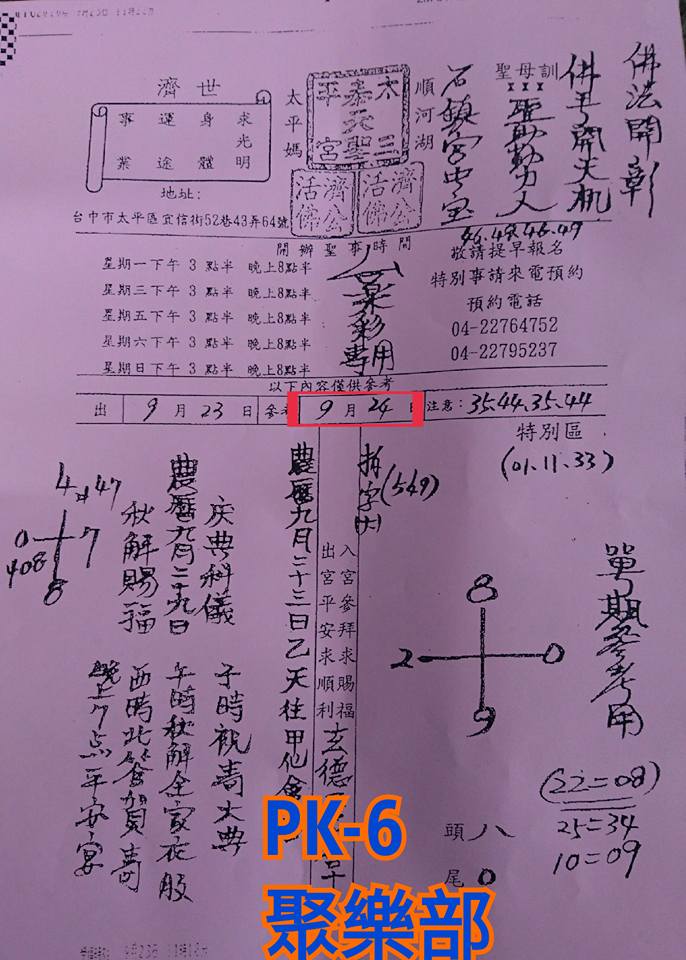 佛法開彰
佛手開天机
聖母訓
聖助勤人
石鎮宮中宝
46.48.46.49
順河湖
太三
泰天聖
平宮
太平媽
濟公活佛
濟公活佛
濟世
求身運事
光
明體途業
地址:
台中市太平區宜信街52巷43弄64號
開辦聖事時間
星期一下午 3 點半 晚上8點半
星期三下午 3 點半 晚上8點半
星期五下午 3 點半 晚上8點半
星期六下午 3 點半 晚上8點半
星期日下午 3 點半 晚上8點半
敬請提早報名
特別事請來電預約
預約電話
04-22764752
04-22795237
彩專用
以下內容僅供參考
出 9 月 23 日 參考 9 月 24 日 注意: 35.44.35.44
特別區
(01.11.33)
單号期參考用
8
2 0
9
(22=08)
25=34
10=09
頭 八
尾 0
拆字
(549)
入宮參拜求賜福
出宮平安求順利
玄德
農曆九月二十三日乙天往甲他會
慶典科儀
子時祝壽大典
農曆九月二十九日
午時秋解全家衣服
秋解賜福
酉時
賀壽
晚上7点平安宴
4 47
0 7
408 8
PK-6
聚樂部